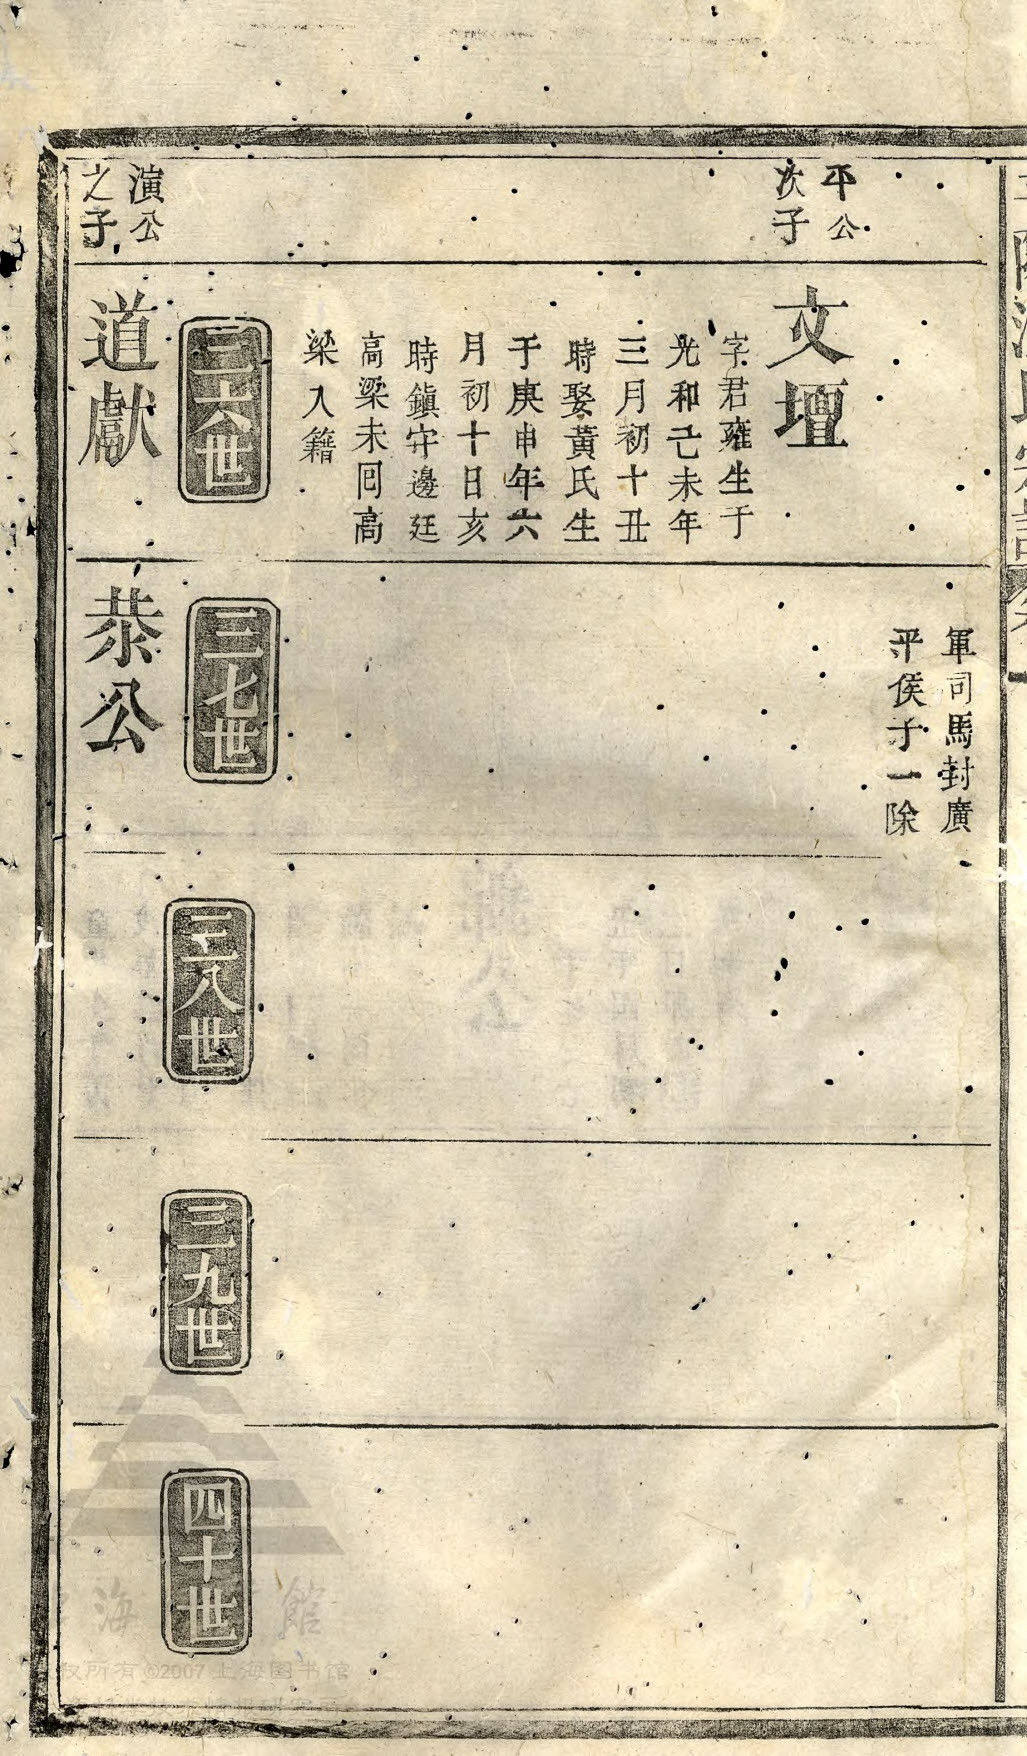 平公
次子
文壇
字君雍生于
光和己未年
三月初十丑
時娶黃氏生
于庚申年六
月初十日亥
時鎮守邊廷
高梁未囘高
梁入籍
軍司馬封廣
平侯子一除
演公
之子
三六世
道獻
三七世
恭公
三八世
三九世
四十世
海 館
权所有©2007上海图书馆